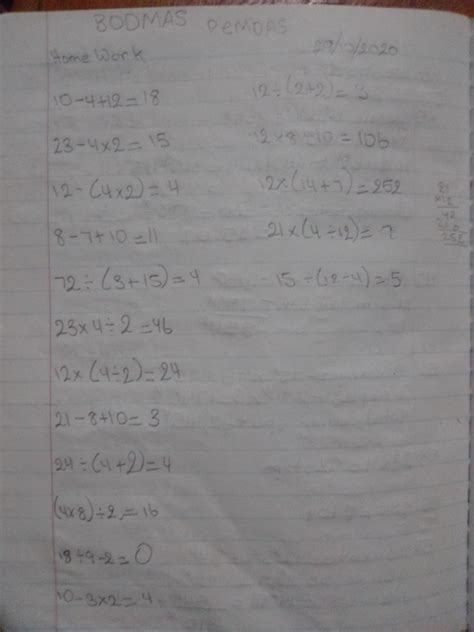 BODMAS PEMDAS
Home Work
10-4+12=18
23-4×2=15
12-(4×2)=4
8-7+10=11
72÷(3+15)=4
23×4÷2=46
12×(4÷2)=24
21-8+10=3
24÷(4+2)=4
(4×8)÷2=16
18÷9-2=0
10-3×2=4
12÷(2+2)=3
12×8+10=106
12×(14+7)=252
21×(4÷12)=7
15÷(12-4)=5
21
×12
42
252